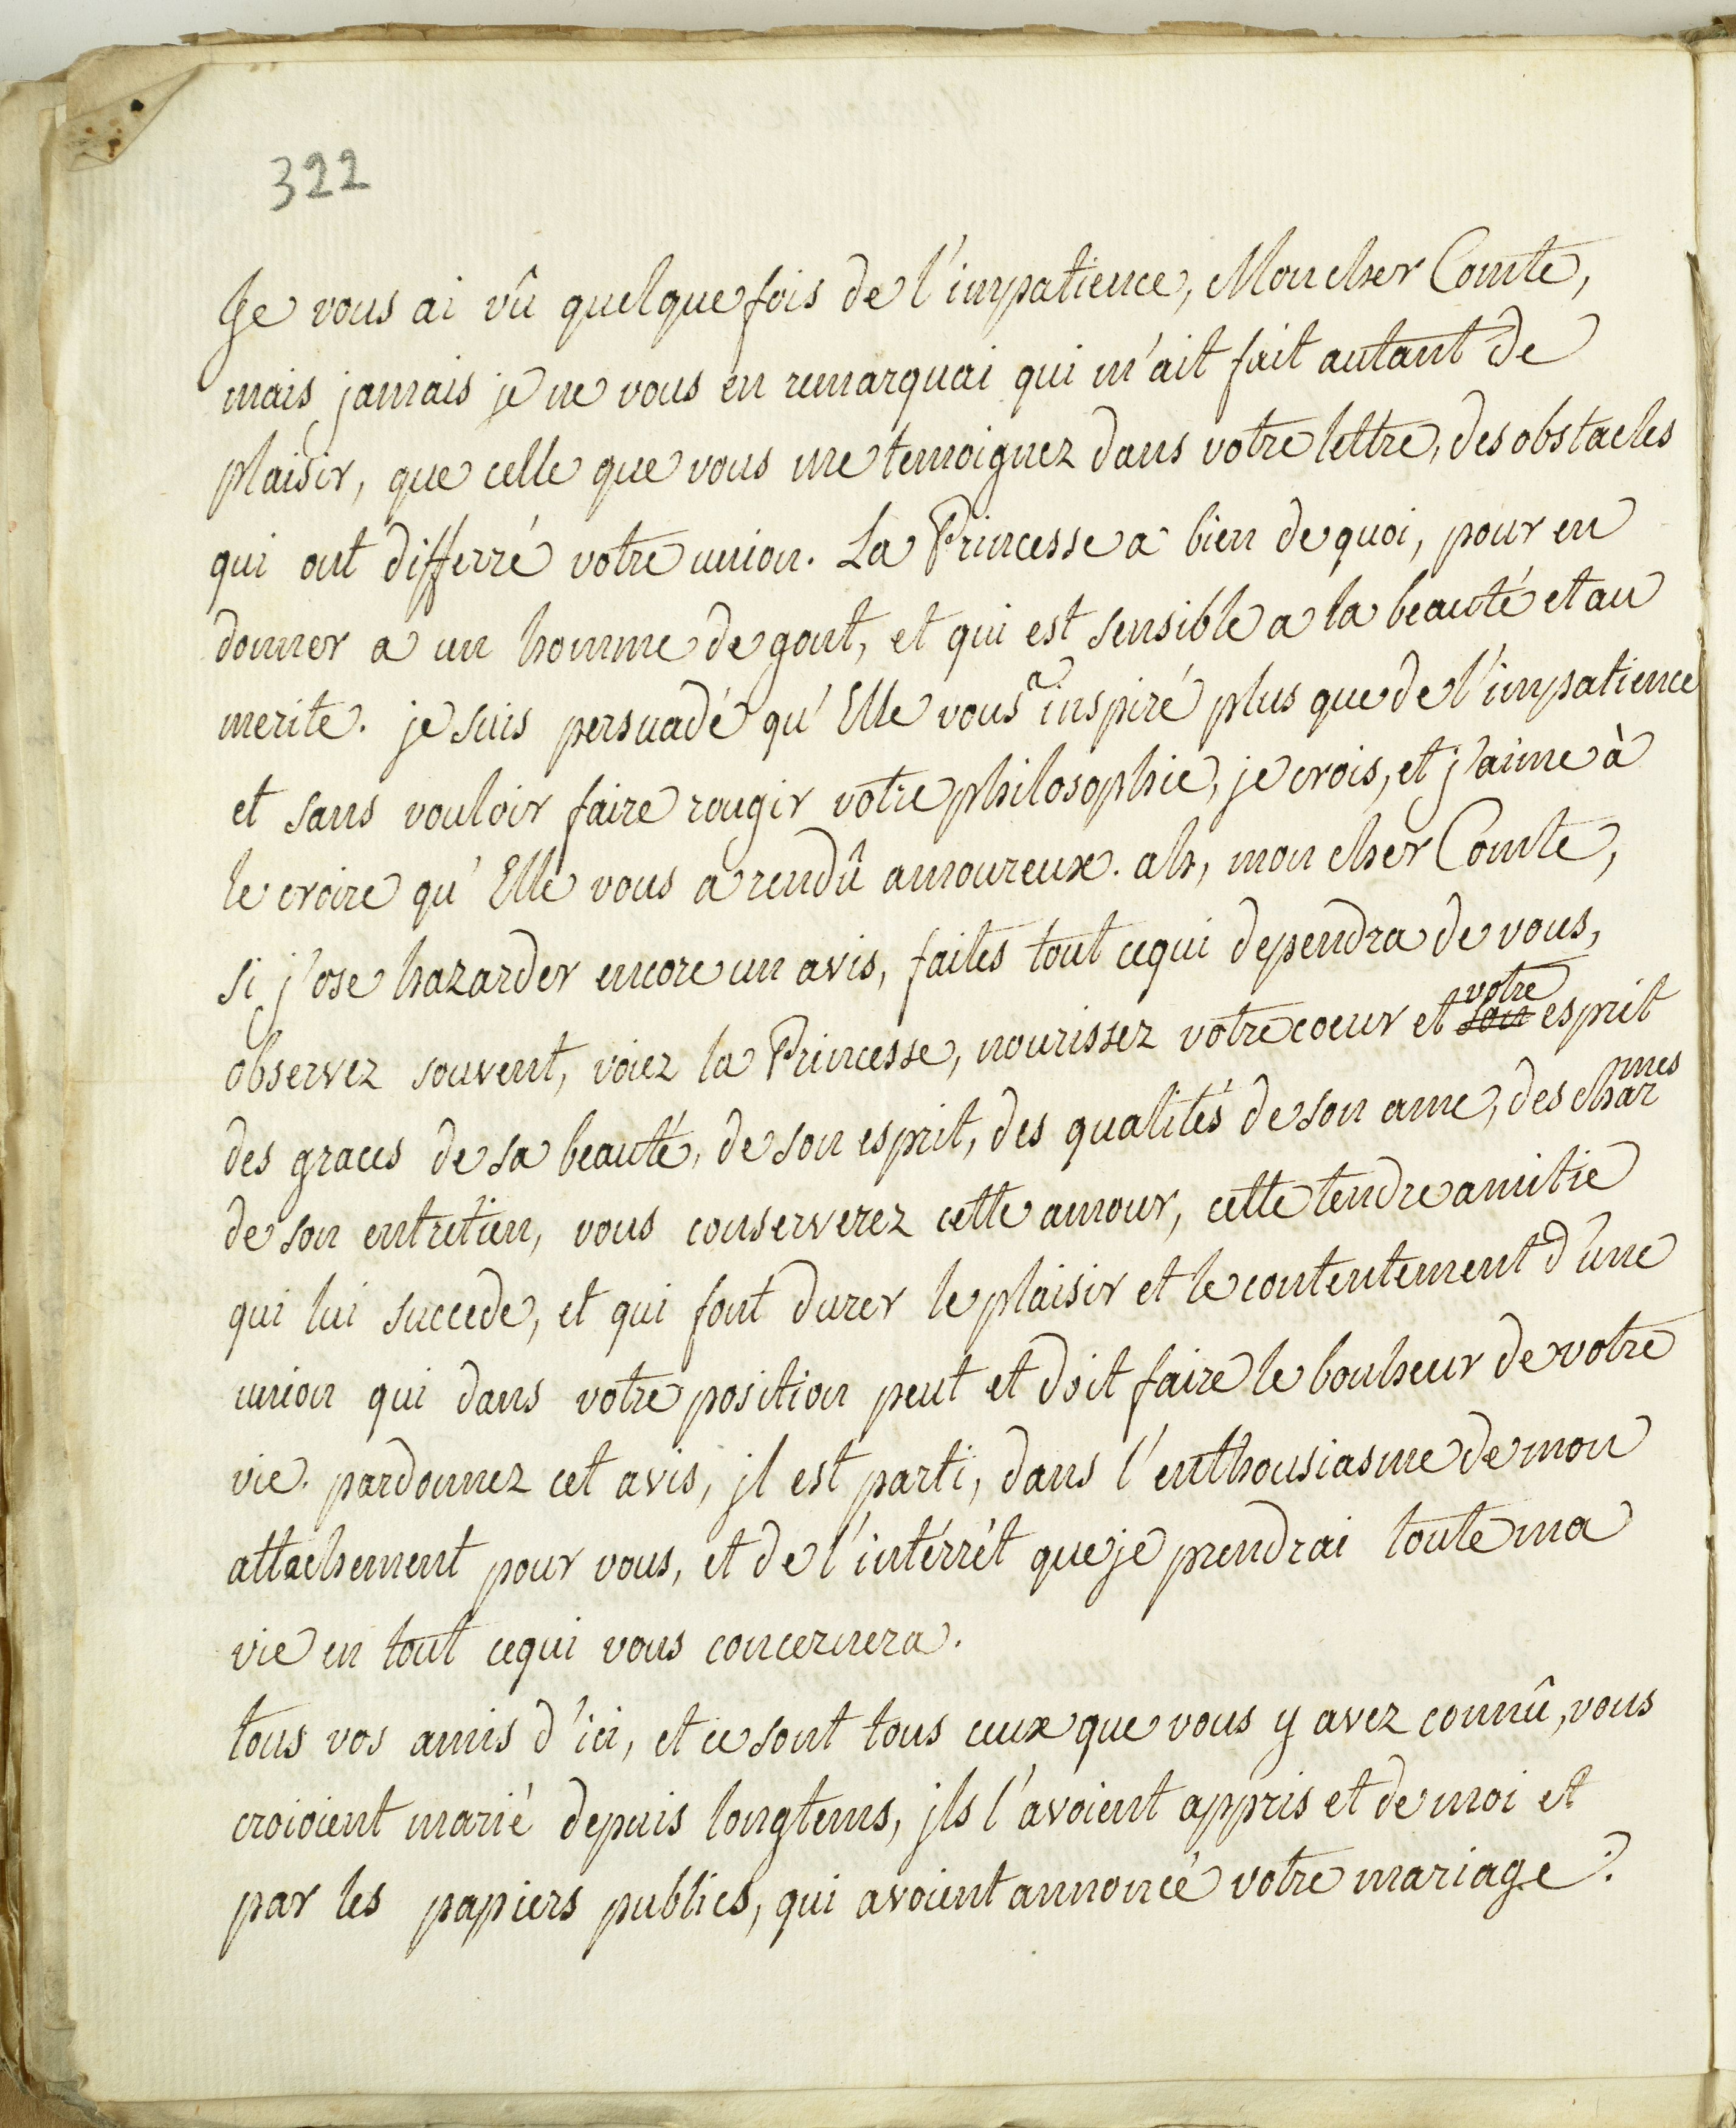 322
Je vous ai vû quelque fois de l'impatience, Mon cher Comte,
mais jamais je ne vous en remarquai qui m'ait fait autant de
plaisir, que celle que vous me temoignez dans votre lettre, des obstacles
qui ont differré votre union. La Princesse a bien de quoi, pour en
donner a un homme de gout, et qui est sensible a la beauté et au
merite. je suis persuadé qu'Elle vous a inspiré plus que de l'impatience
et sans vouloir faire rougir votre philosophie, je crois, et j'aime à
le croire qu'Elle vous a rendû amoureux. ah, mon cher Comte,
si j'ose hazarder encore un avis, faites tout cequi dependra de vous,
observez souvent, voiez la Princesse, nourissez votre coeur et son votre esprit
des graces de sa beauté, de son esprit, des qualités de son ame, des charmes
de son entretien, vous conserverez cette amour, cette tendre amitie
qui lui succede, et qui font durer le plaisir et le contentement d'une
union qui dans votre position peut et doit faire le bonheur de votre
vie. pardonnez cet avis, jl est parti, dans l'enthousiasme de mon
attachement pour vous, et de l'intérrét que je prendrai toute ma
vie en tout cequi vous concernera.
tous vos amis d'ici, et ce sont tous ceux que vous y avez connû, vous
croioient marié depuis longtems, jls l'avoient appris et de moi et
par les papiers publics, qui avoient annoncé votre mariage.